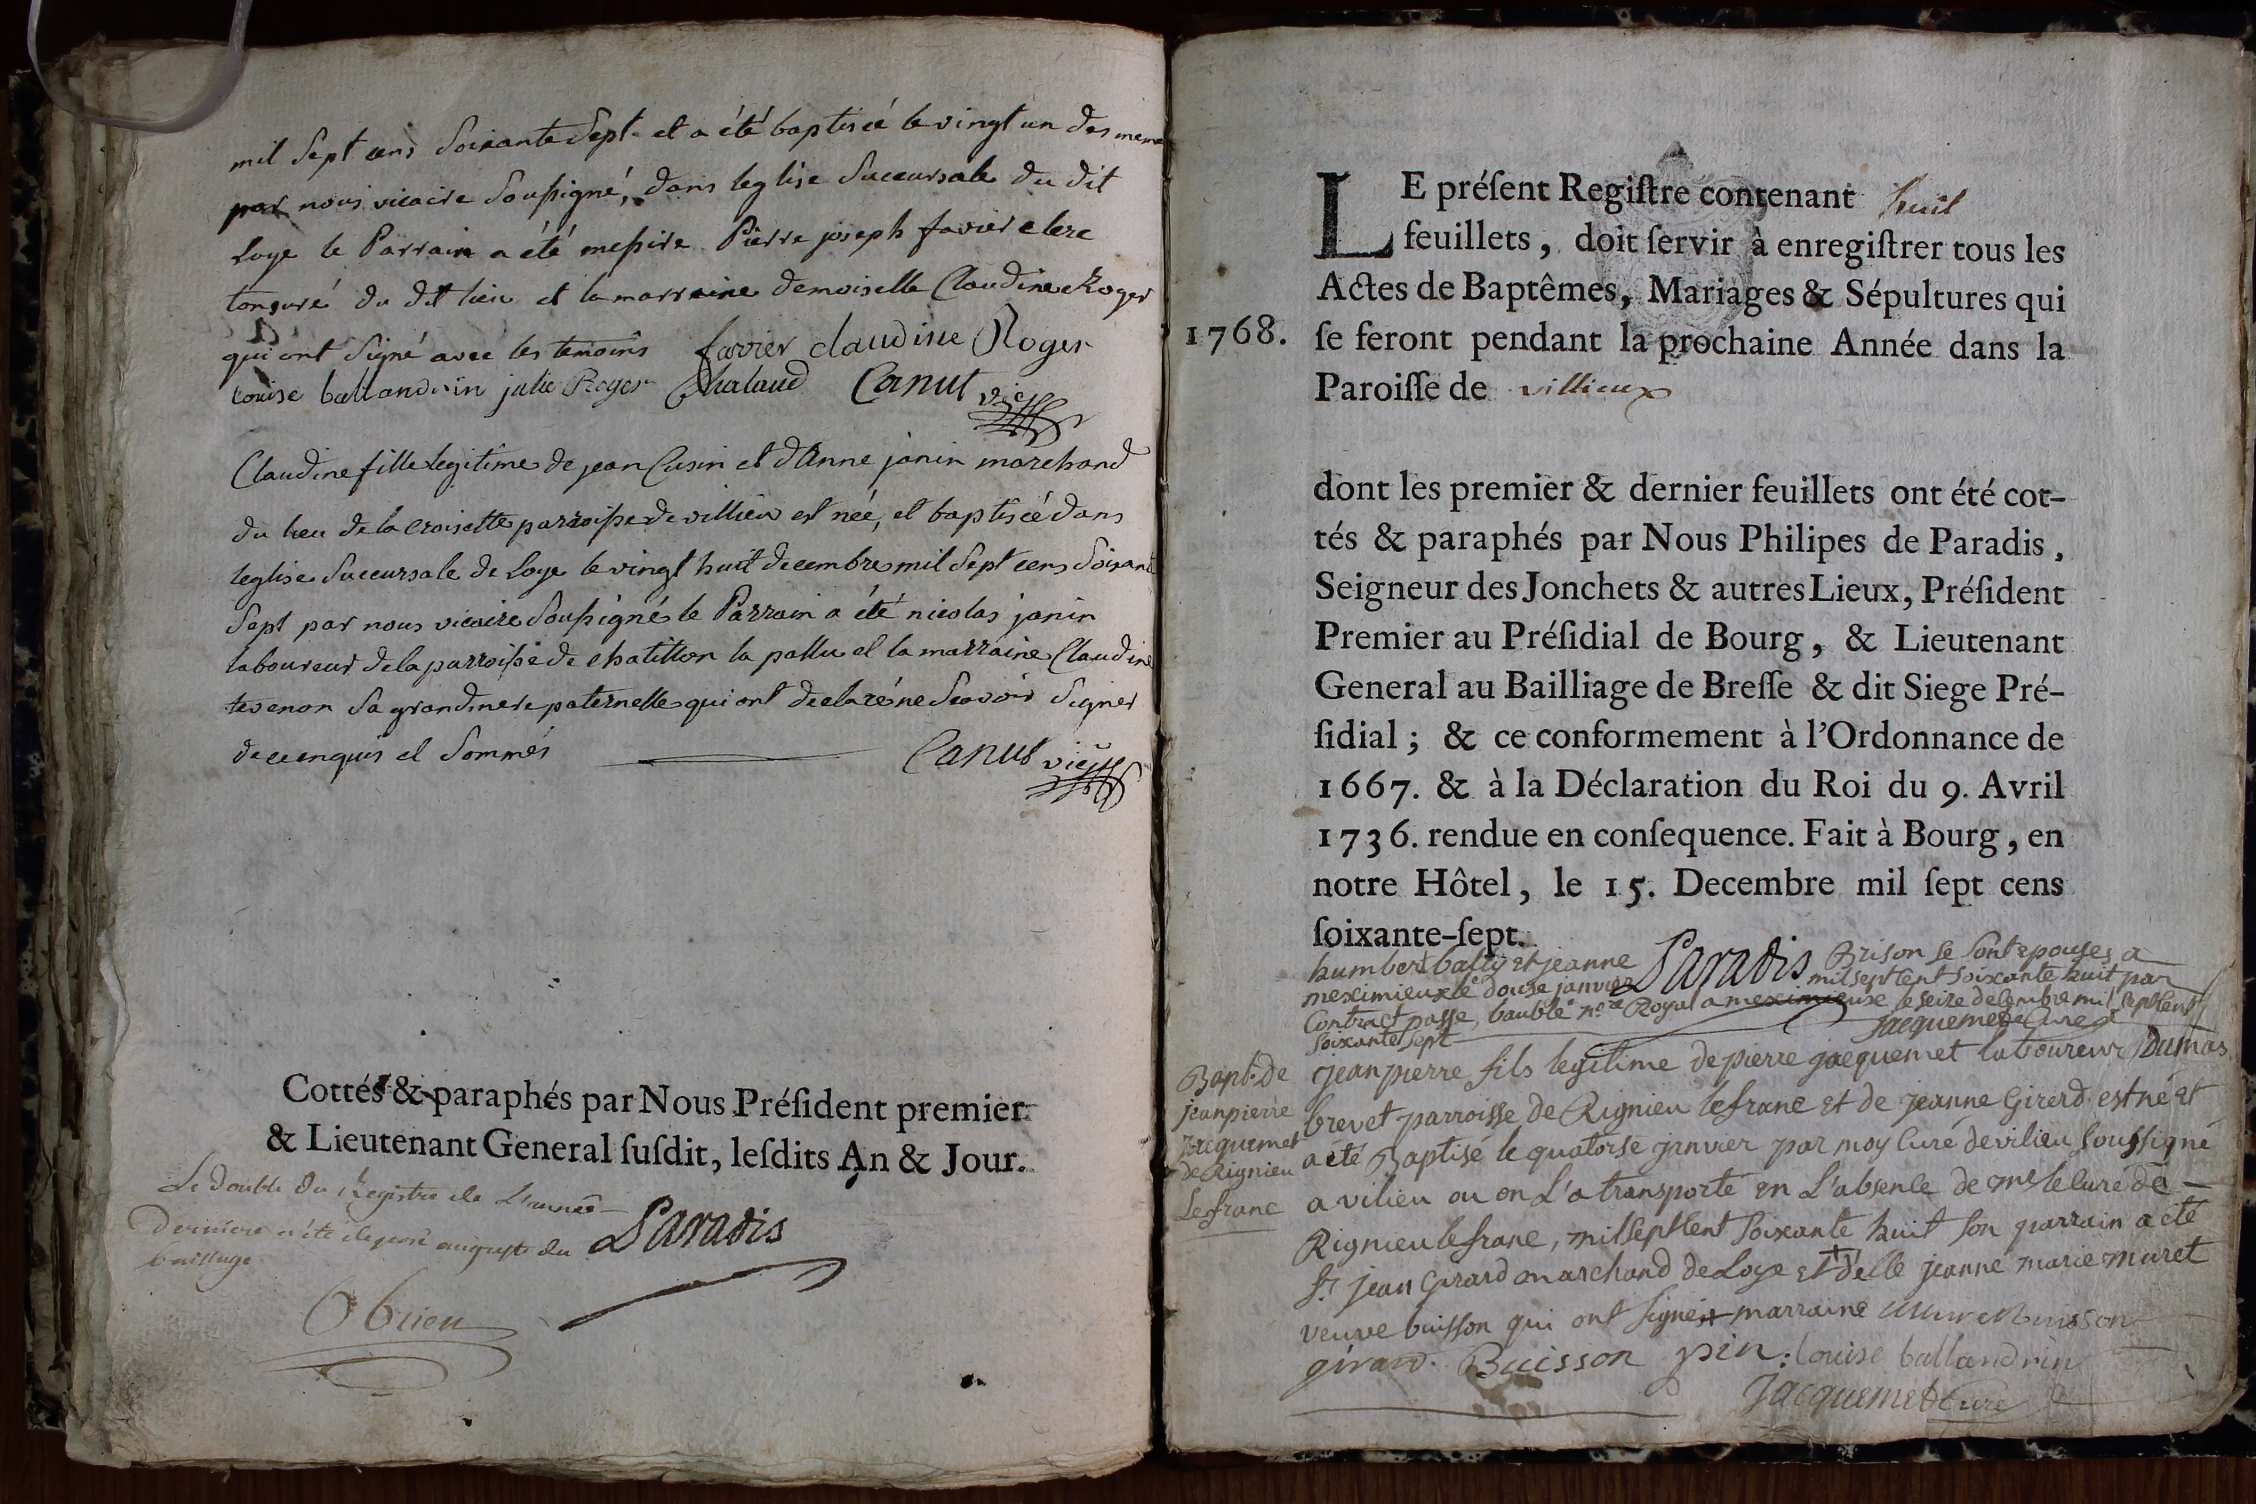 mil Sept cens Soixante Sept et a été baptisée le vingt un des meme
par nous vicaire Soussigné, dans leglise Succursale du dit
Loye le Parrain a été messire Pierre joseph favier clerc
tonsuré du dit lieu et la marraine demoiselle Claudine Roger
qui ont Signé avec les temoins favier claudine Roger
Louise ballandrin julie Roger Chalaud Canut vic
Claudine fille legitime de jean Cusin et d'Anne janin marchand
du lieu de la croisette parroisse de villieu est née, et baptisée dans
leglise Succursale de Loye le vingt huit decembre mil Sept cens Soixante
Sept par nous vicaire Soussigné le Parrain a été nicolas janin
laboureur de la parroisse de chatillon la pallu et la marraine Claudine
tevenon Sa grandmere paternelle qui ont declaré ne Scavoir Signer
de ce enquis et Sommés Canut vic
Cottés & paraphés par Nous Préſident premier
& Lieutenant General ſuſdit, leſdits An & Jour.
Le double du Registre de L'année
derniere a été deposé au greffe du
bailliage
Paradis
Obrien
LE préſent Regiſtre contenant huit
feuillets, doit ſervir à enregiſtrer tous les
Actes de Baptêmes, Mariages & Sépultures qui
1768. ſe feront pendant la prochaine Année dans la
Paroiſſe de villieux
dont les premier & dernier feuillets ont été cot-
tés & paraphés par Nous Philipes de Paradis,
Seigneur des Jonchets & autres Lieux, Préſident
Premier au Préſidial de Bourg, & Lieutenant
General au Bailliage de Breſſe & dit Siege Pré-
ſidial; & ce conformement à l'Ordonnance de
1667. & à la Déclaration du Roi du 9. Avril
1736. rendue en conſequence. Fait à Bourg, en
notre Hôtel, le 15. Decembre mil ſept cens
ſoixante-ſept.
Paradis
humbert bally et jeanne Brison se sont epouses a
meximieux le douse janvier mil sept cent soixante huit par
Contract passe, bauble nre Royal a meximieux le seize decembre mil sept cent
soixante sept Jacquemet Curé
Bapt. de
jeanpierre
Jacquemet
de Rignieu
Lefranc
jean pierre fils legitime de pierre jacquemet laboureur Dumas
brevet parroisse de Rignieu lefranc et de jeanne Girerd est né et
a eté Baptisé le quatorse janvier par moy Curé de vilieu soussigné
a vilieu ou on L'a transporté en L'absence de mr le curé de
Rignieu lefranc, mil sept cent soixante huit son parrain a eté
sr jean Girard marchand de Loye et delle jeanne marie muret
veuve buisson qui ont signé marraine muret buisson
girard. Buisson pin: louise ballandrin
Jacquemet Curé